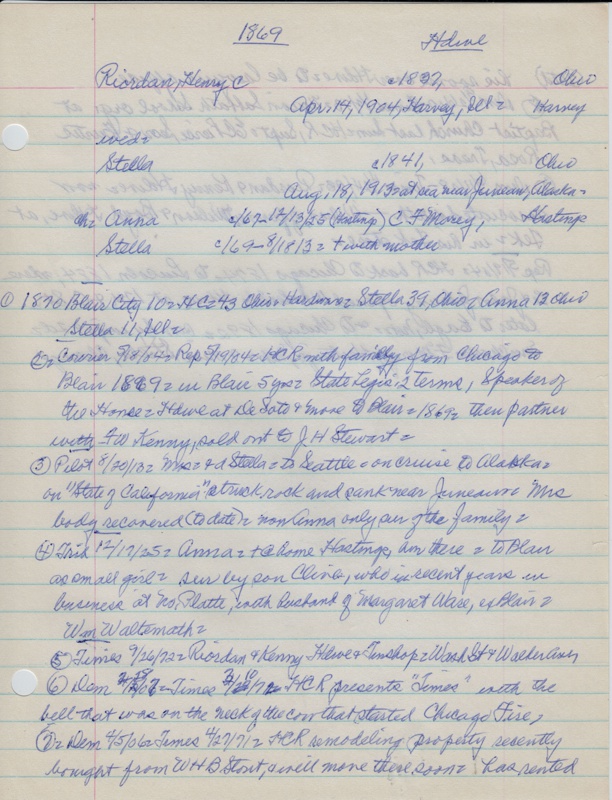 1869 Hdwe
Riordan, Henry C c1837, Ohio
Apr. 14, 1904, Harvey, Ill = Harvey
wed=
Stella c1841, Ohio
Aug, 18, 1913=at sea near Juneau, Alaska=
ch= Anna c/67-12/13/25 (Hastings) C F Morey, Hastings
Stella c/69-8/18/13= + with mother
① 1870 Blair City 10=HC=43 Ohio=Hardware= Stella 39, Ohio=Anna 13 Ohio
Stella 11, Ill=
②= Courier 5/18/04= Rep 5/19/04= HCR with family from Chicago to
Blair 1869= in Blair 5 yrs= State Legis 2 terms, Speaker of
the House= Hdwe at De Soto & move to Blair=1869= then partner
with FW Kenny, sold out to J H Stewart=
③ Pilot 8/20/13= Mrs= & d Stella= to Seattle=on cruise to Alaska=
on "State of California" struck rock and sank near Juneau= Mrs
body recovered (to date)= now Anna only sur of the family=
④ Trib 12/17/25= Anna= + @ home Hastings, bur there = to Blair
as small girl= sur by son Cline, who in recent years in
business at No. Platte, with husband of Margaret Ware, ex Blair=
Wm Waltemath=
⑤ Times 9/26/72= Riordan & Kenny Hdwe & Tinshop= Wash St & Walker Aven
⑥ Dem =Times = HCR presents "Times" with the
bell that was on the neck of the cow that started Chicago Fire,
⑦= Dem 4/5/06=Times 4/27/71= HCR remodeling property recently
bought from WHB Stout, & will move there soon= has rented